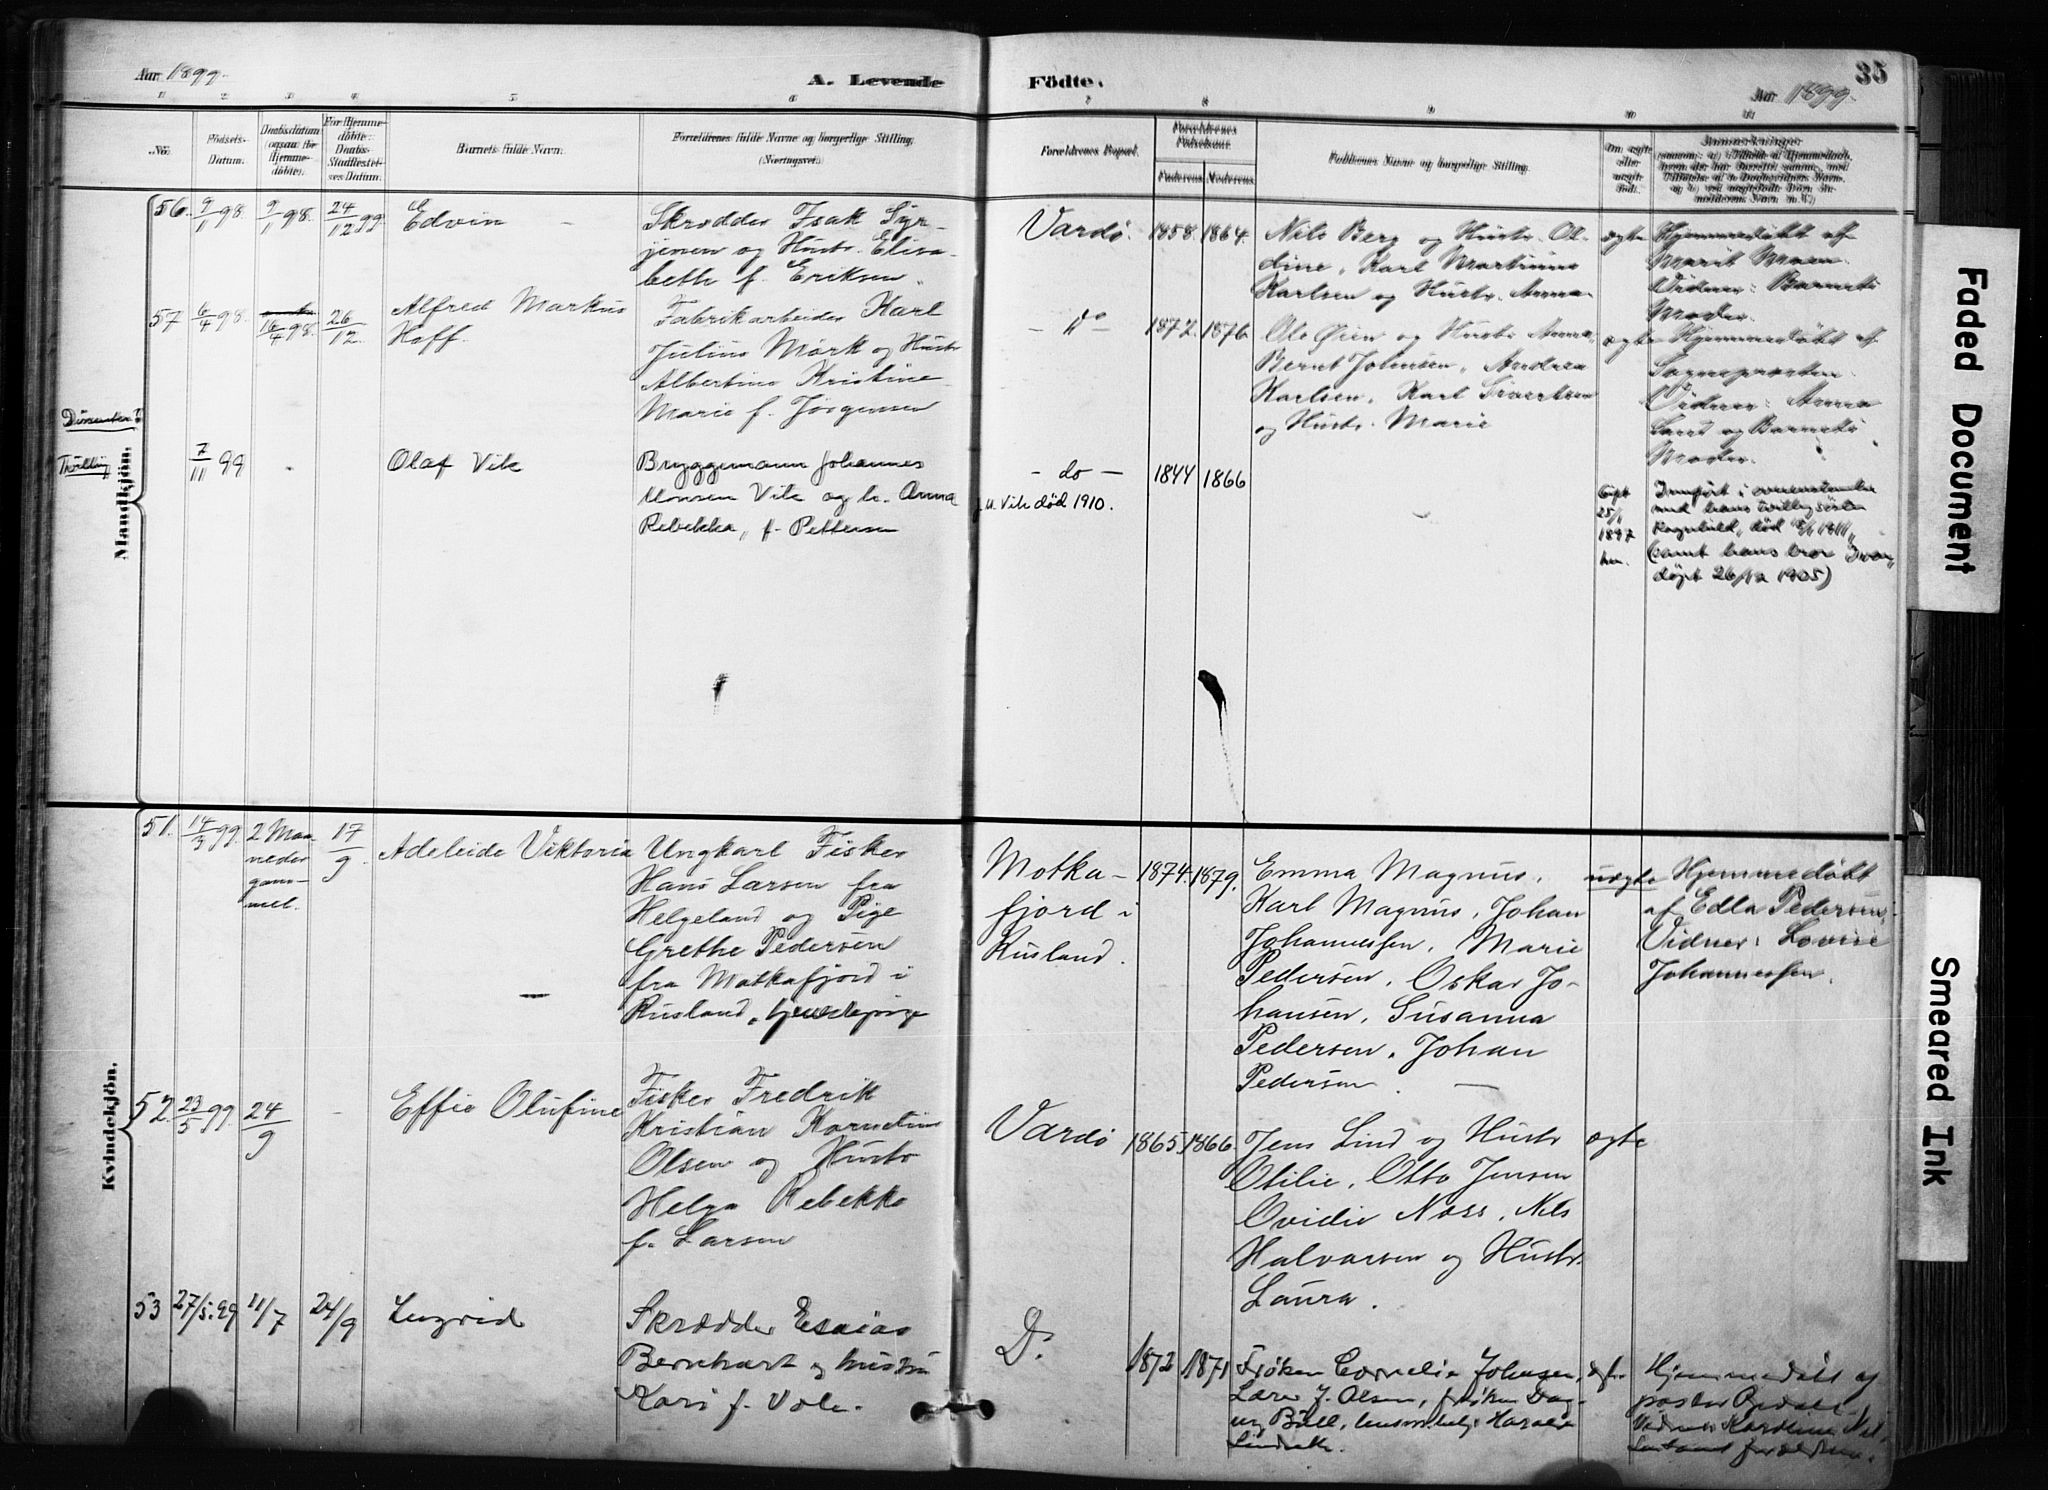 Aar 1899.
A. Levende
Födte.
35
Aar 1899.
1 2 3 4 5 6 7 8 9 10 11
No.
Födsels-
Datum.
Daabsdatum
(ogsaa for
Hjemme-
döbte).
For Hjemme-
döbte:
Daabs-
Stadfæstel-
ses-Datum.
Barnets fulde Navn.
Forældrenes fulde Navne og borgerlige Stilling,
(Næringsvei).
Forældrenes Bopæl.
Forældrenes
Födselsaar.
Faderens. Moderens.
Faddernes Navne og borgerlige Stilling.
Om ægte
eller
uægte
födt.
Anmærkninger
Mandkjön.
56. 9/11 98. 9/11 98. 24/12 99 Edvin
Skrædder Isak Syr-
jenen og Hustr. Elisa-
beth f. Eriksen.
Vardö. 1858. 1864.
Nils Berg og Hustr. Ol-
dine, Karl Martinius
Karlsen og Hustr. Anna
ægte
Hjemmedöbt af
Marit Moen.
Vidner: Barnets
Moder.
57 6/4 98. 16/4 98. 26/12.
Alfred Markus
Hoff.
Fabrikarbeider Karl
Julius Mörk og Hustr
Albertine Kristine
Marie f. Jörgensen
— Do — 1872. 1876.
Ole Öien og Hustr Anna,
Bernt Johnsen, Andrea
Karlsen, Karl Sivertsen
og Hustr. Marie
ægte
Hjemmedöbt af
Sognepræsten.
Vidner: Anna
Lund og Barnets
Moder.
Dissenter
Tvilling
7/11 99
Olaf Vik
Bryggemann Johannes
Monsen Vik og h. Anna
Rebekka, f. Pettersen
— do — 1844 1866
M. Vik död 1910.
Gift
25/1
1897
Innfört i overenstemmelse
med hans tvillingsöster
Ragnhild, död
(samt hans bror Ivar,
döpt 26/12 1905)
Kvindekjön.
51. 14/3 99. 2 Maa-
neder
gam-
mel. 17/9.
Adeleide Viktoria
Ungkarl Fisker
Hans Larsen fra
Helgeland og Pige
Grethe Pedersen
fra Motkafjord i
Rusland,
Motka-
fjord i
Rusland.
1874. 1879.
Emma Magnus,
Karl Magnus, Johan
Johannessen, Marie
Pedersen, Oskar Jo-
hansen, Susanna
Pedersen, Johan
Pedersen.
uægte
Hjemmedöbt
af Edla Pedersen,
Vidner: Lovise
Johannessen.
52. 23/5 99. 24/9 —
Effie Olufine
Fisker Fredrik
Kristian Kornelius
Olsen og Hustr
Helga Rebekka
f. Larsen
Vardö 1865. 1866.
Jens Lind og Hustr
Otilie, Otto Jensen
Ovidie Noss, Nils
Halvorsen og Hustr.
Laura.
ægte
53 27/5.99 11/7 24/9
Ingrid
Skrædder Esaias
Bernhart og hustru
Kari f. Vole.
D. 1872 1871
Fröken Cornelia Johnsen,
Lærer J. Olsen, fröken Dag-
ny Bull, Harald
ægte
Hjemmedöbt af
pastor
Faded Document
Smeared Ink